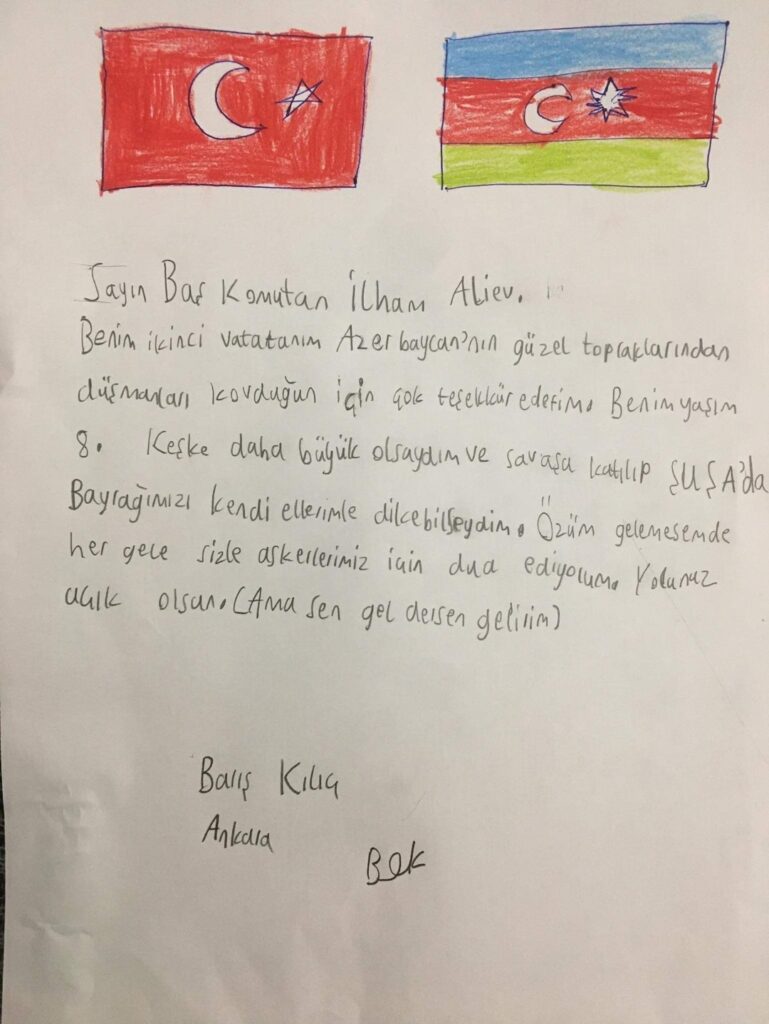 Sayın Baş Komutan İlham Aliev.
Benim ikinci vatatanım Azerbaycan'nın güzel topraklarından
düşmanları kovduğun için çok teşekkür ederim. Benim yaşım
8. Keşke daha büyük olsaydım ve savaşa katılıp ŞUŞA'da
Bayrağımızı kendi ellerimle dikebilseydim. Özüm gelemesemde
her gece sizle askerlerimiz için dua ediyorum. Yolunuz
açık olsun. (Ama sen gel dersen gelirim)
Barış Kılıç
Ankara